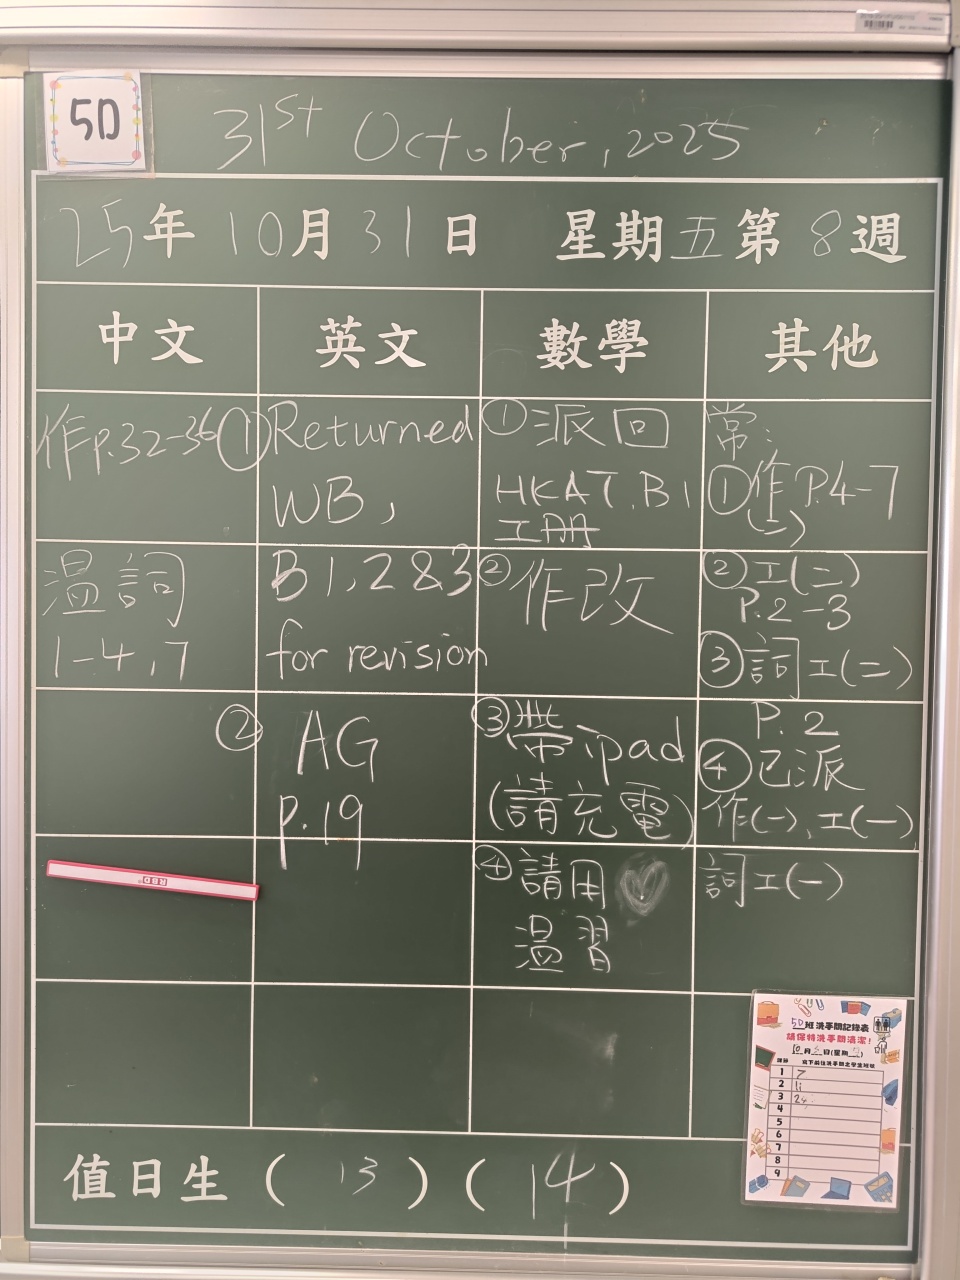 5D
31st October, 2025
25年10月31日 星期五第8週
中文 英文 數學 其他
作p.32-36
温詞
1-4,7
① Returned
WB,
B1,2&3
for revision
② AG
p.19
① 派回
HKAT.B1
工册
② 作改
③ 帶ipad
(請充電)
④ 請用♡
温習
常:
①作P.4-7
(二)
②工(二)
P.2-3
③詞工(二)
P.2
④已派
作(一)、工(一)
詞工(一)
5D班洗手間記錄表
請保持洗手間清潔!
10月 日(星期 )
寫下前往洗手間之學生班號
1 7
2 11
3 24
4
5
6
7
8
9
值日生(13)(14)